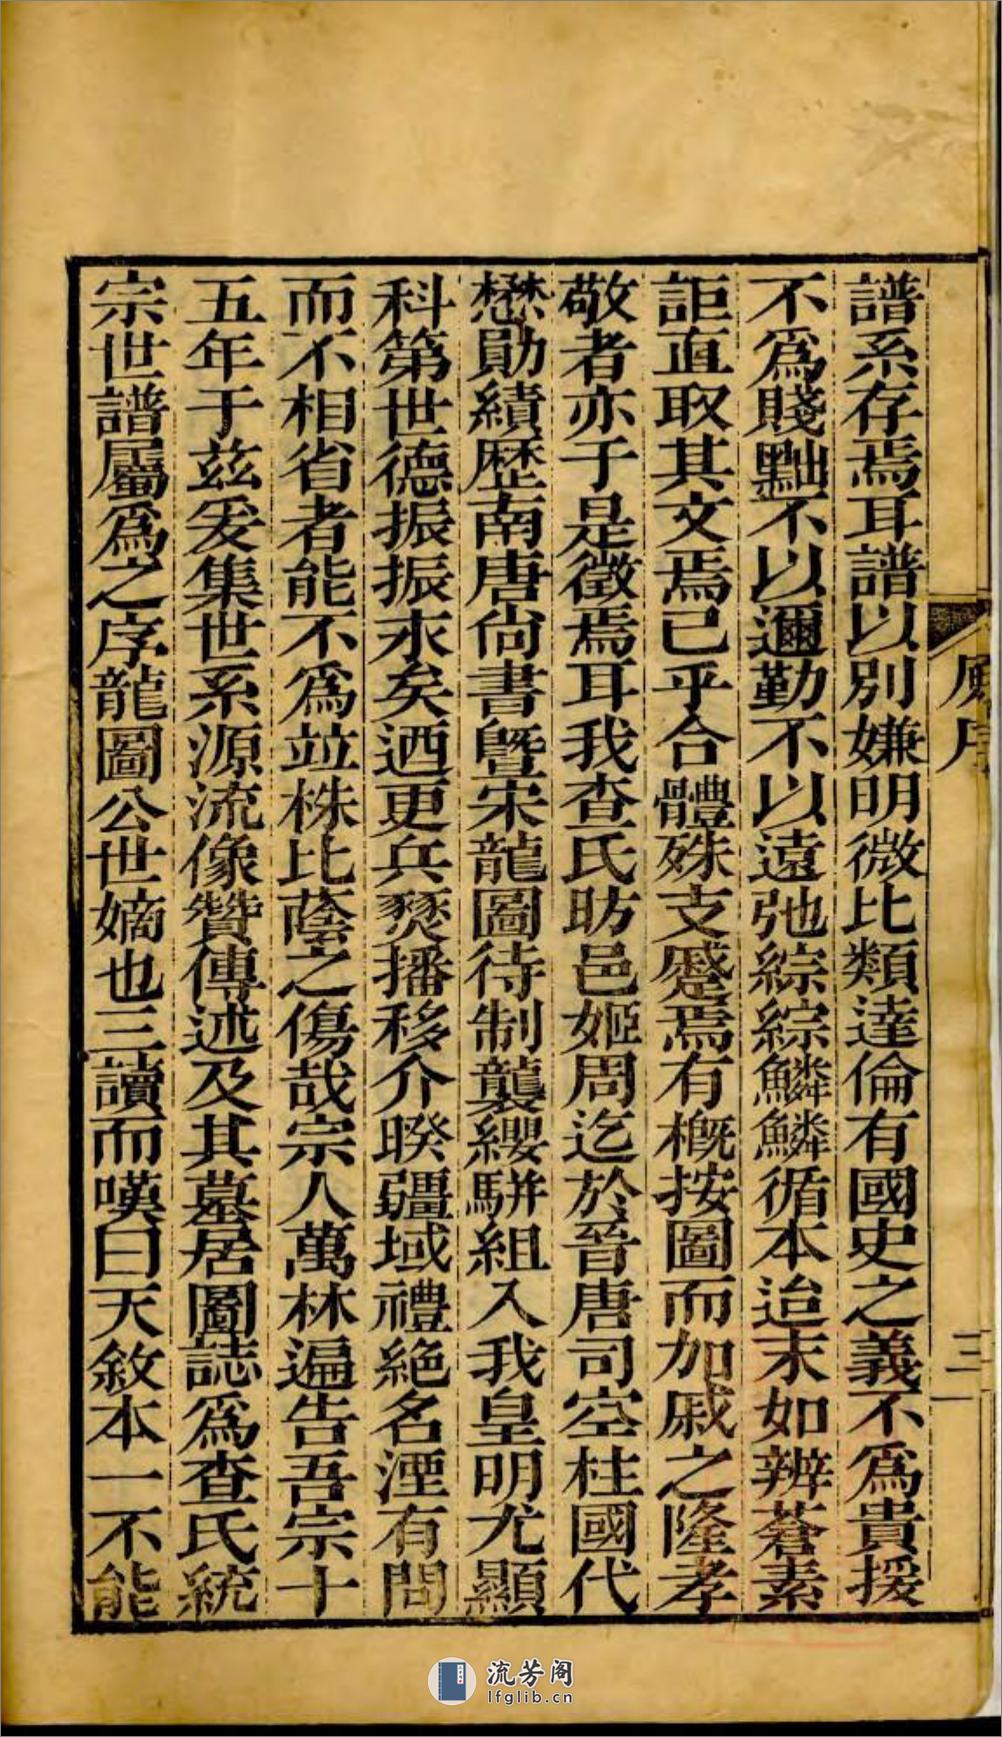 譜系存焉耳譜以別嫌明微比類達倫有國史之義不爲貴援
不爲賤黜不以邇勤不以遠弛綜綜鱗鱗循本迨末如辨蒼素
詎直取其文焉已乎合體殊支蹙焉有概按圖而加戚之隆孝
敬者亦于是徵焉耳我查氏昉邑姬周迄於晉唐司空柱國代
懋勛績歷南唐尙書曁宋龍圖待制襲纓駢組入我皇明尤顯
科第世德振振永矣迺更兵燹播移介暌疆域禮絶名湮有問
而不相省者能不爲竝株比蔭之傷哉宗人萬林遍告吾宗十
五年于兹爰集世系源流像贊傳述及其墓居圖誌爲查氏統
宗世譜屬爲之序龍圖公世嫡也三讀而嘆曰天敘本一不能
序
三
流芳阁
lfglib.cn